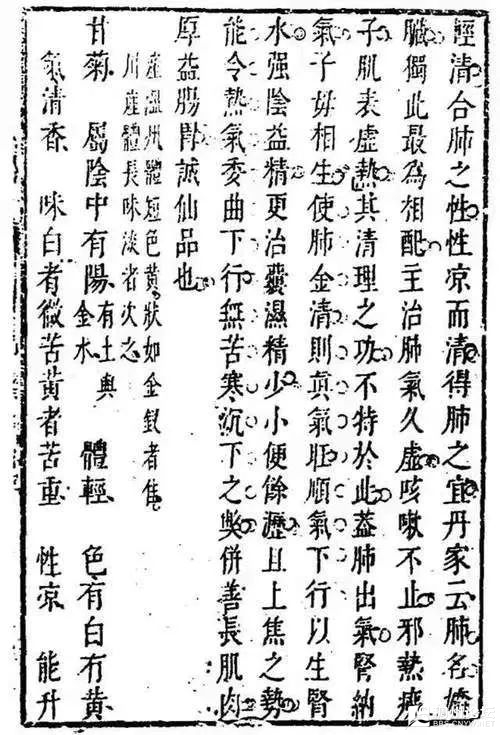 輕清合肺之性性凉而清得肺之宜丹家云肺名嬌
臟獨此最為相配主治肺氣久虛咳嗽不止邪熱瘧
子肌表虛熱其清理之功不特於此蓋肺出氣腎納
氣子母相生使肺金清則真氣旺順氣下行以生腎
水强陰益精更治囊濕精少小便餘瀝且上焦之勢
能令熱氣委曲下行無苦寒沉下之弊併善長肌肉
厚益腸胃誠仙品也
產溫州體短色黃狀如金釵者佳
川產體長味淡者次之
甘菊 屬陰中有陽有土與金水 體輕 色有白有黃
氣清香 味白者微苦黃者苦重 性凉 能升